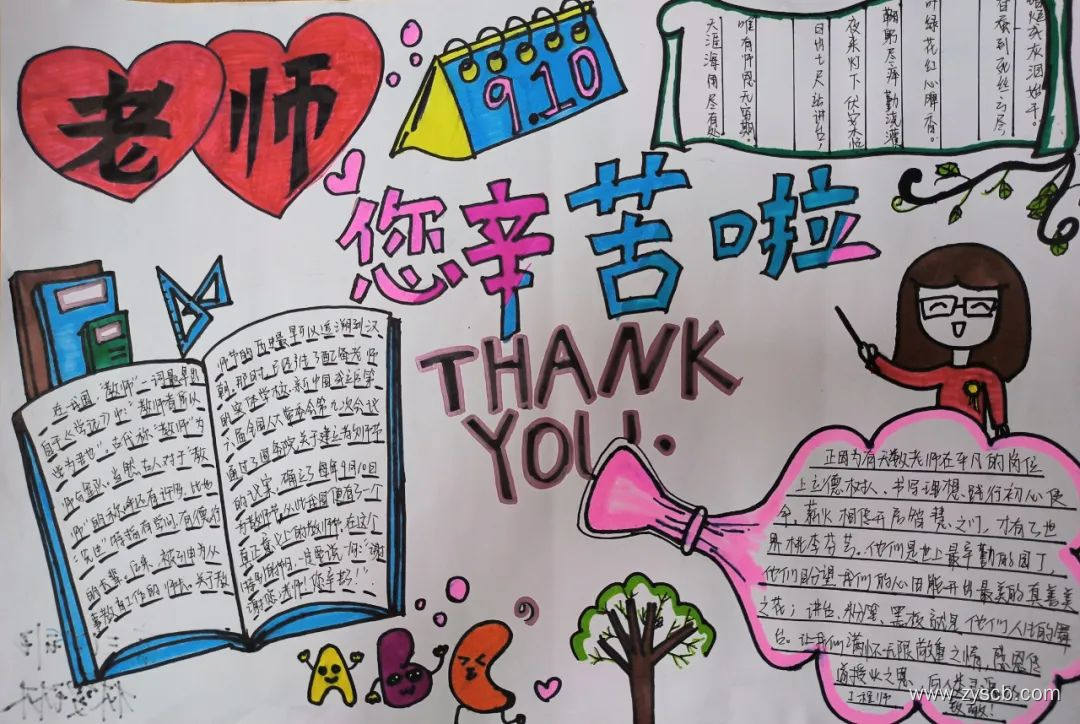 老师
9.10
您辛苦啦
THANK
YOU.
烟成灰泪始干。
春蚕到死丝方尽,
叶绿花红心脾香。
鞠躬尽瘁勤浇灌
夜来灯下伏案忙
日出七尺站讲台,
唯有师恩无穷期。
天涯海角尽有处
在我国,“教师”一词最早出
自于《学记》中:“教师者所以
学为君也”。古代称“教师”为
“先生”特指有学问,有德行
的长辈,后来,被引申为从
事教育工作的师长。关于教
师节的历史最早可以追溯到汉
的实体学校,新中国成立后第
六届全国人大常委会第九次会议
通过了国务院关于建立教师节
的议案,确立了每年9月10日
为教师节,从此我国便有了一个
真正意义上的教师节。在这个
特别的节日,一定要说一句:“谢
谢您,老师!您辛苦了!”
ABC
正因为有无数老师在平凡的岗位
上立德树人、书写理想、践行初心使
命,薪火相传开启智慧之门,才有了世
界桃李芬芳。他们是世上最辛勤的园丁,
他们日夜望我们的心田能开出最美的真善美
之花;讲台、粉笔、黑板就是他们人生的舞
台。让我们满怀无限敬重之情,感恩传
道授业之恩,向人类灵魂
工程师 致敬!
www.zyscb.com